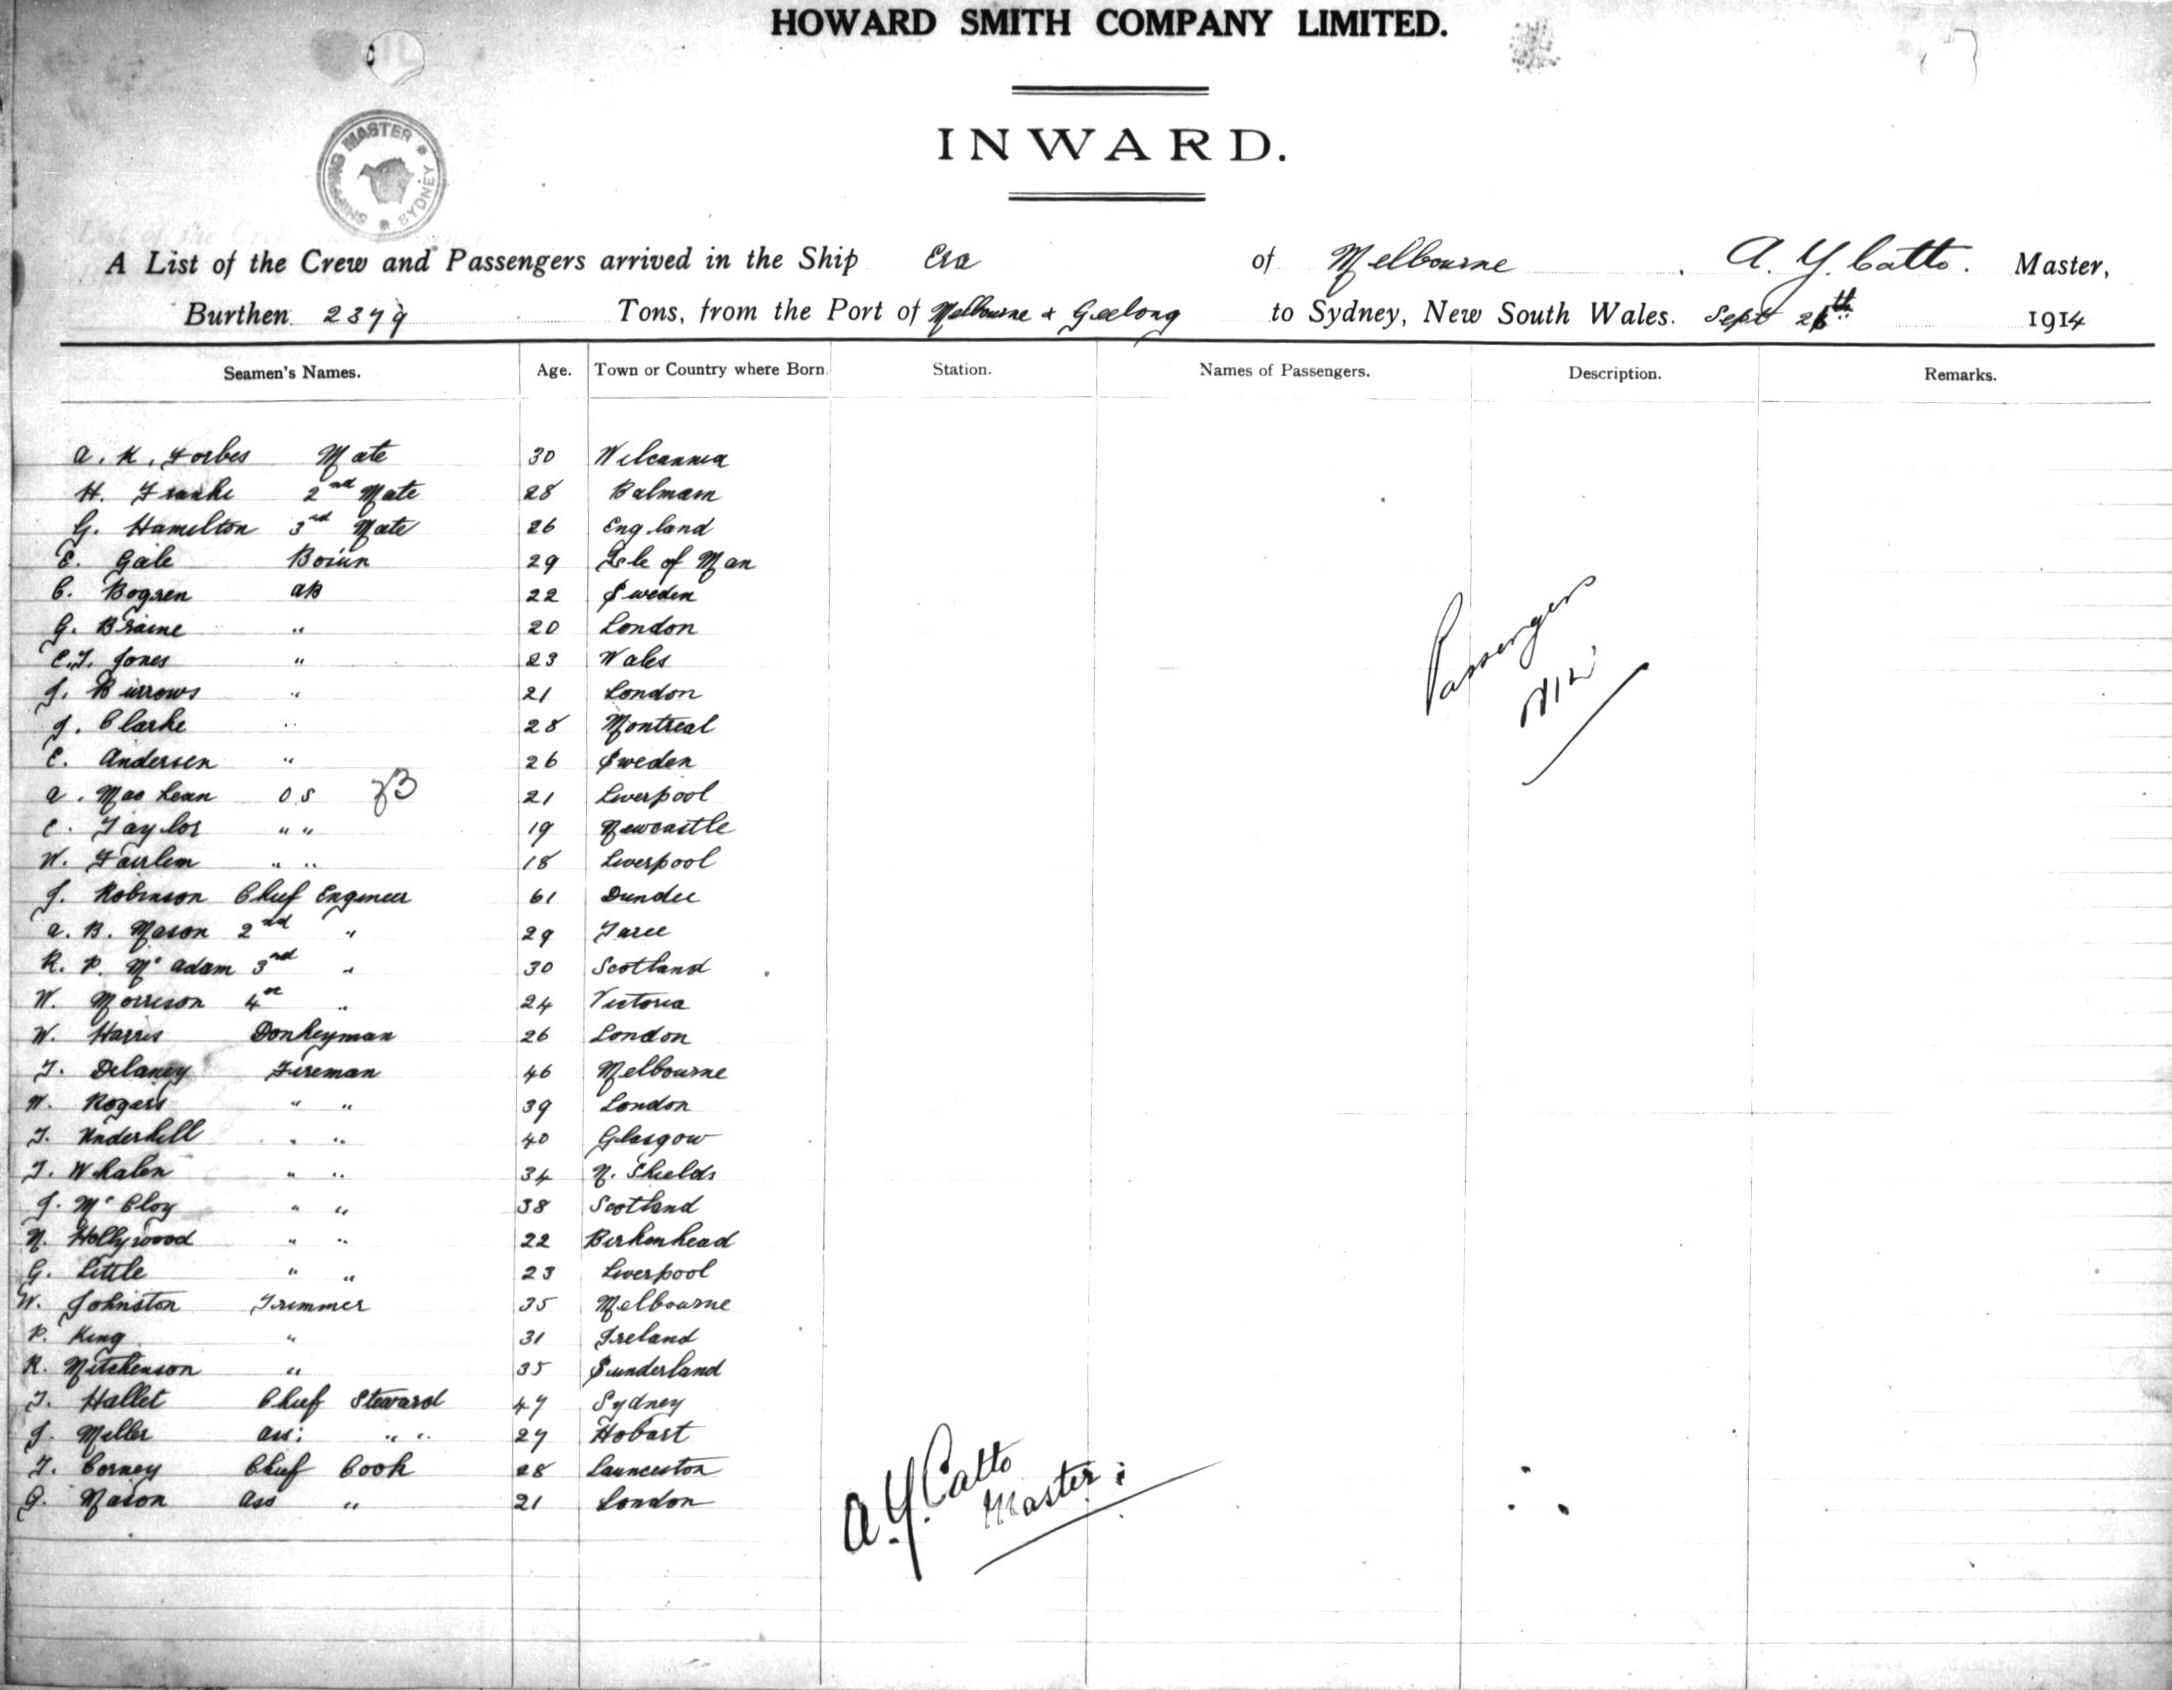 HOWARD SMITH COMPANY LIMITED.
INWARD.
SHIPPING MASTER SYDNEY
A List of the Crew and Passengers arrived in the Ship Era of Melbourne A. Y. Catto. Master,
Burthen 2379 Tons, from the Port of Melbourne & Geelong to Sydney, New South Wales. Sept 26th 1914
Seamen's Names. Age. Town or Country where Born. Station. Names of Passengers. Description. Remarks.
A. K. Forbes Mate 30 Wilcannia
H. Franke 2nd Mate 28 Balmain
G. Hamilton 3rd Mate 26 England
E. Gale Bosun 29 Isle of Man
C. Bogren AB 22 Sweden
G. Braine " 20 London
E.T. Jones " 23 Wales
J. Burrows " 21 London
J. Clarke " 28 Montreal
E. Andersen " 26 Sweden
A. MacLean OS 21 Liverpool
C. Taylor " " 19 Newcastle
W. Fairlem " " 18 Liverpool
J. Robinson Chief Engineer 61 Dundee
A. B. Mason 2nd " 29 Taree
R. P. McAdam 3rd " 30 Scotland
W. Morrison 4th " 24 Victoria
W. Harris Donkeyman 26 London
T. Delaney Fireman 46 Melbourne
W. Rogers " " 39 London
T. Underhill " " 40 Glasgow
T. Whalen " " 34 N. Shields
J. McCloy " " 38 Scotland
N. Hollywood " " 22 Birkenhead
G. Little " " 23 Liverpool
W. Johnston Trimmer 35 Melbourne
P. King " 31 Ireland
R. Mitchenson " 35 Sunderland
T. Hallet Chief Steward 47 Sydney
J. Miller Ass: " " 27 Hobart
T. Corney Chief Cook 28 Launceston
G. Mason Ass " 21 London
Passengers
Nil
A. Y. Catto
Master